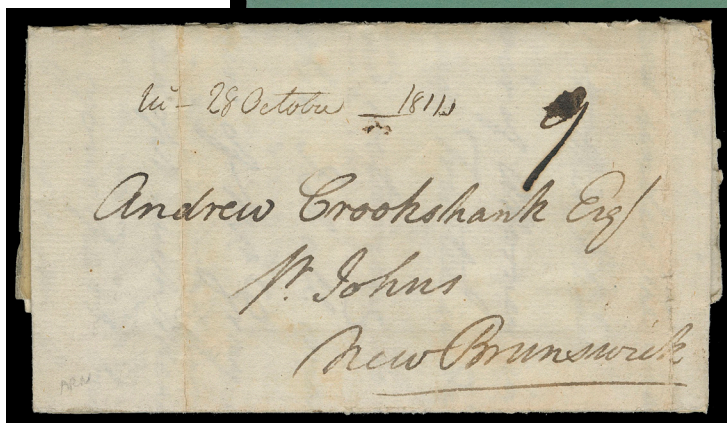 28 October 1811
9
Andrew Crookshank Esq
St. Johns
New Brunswick